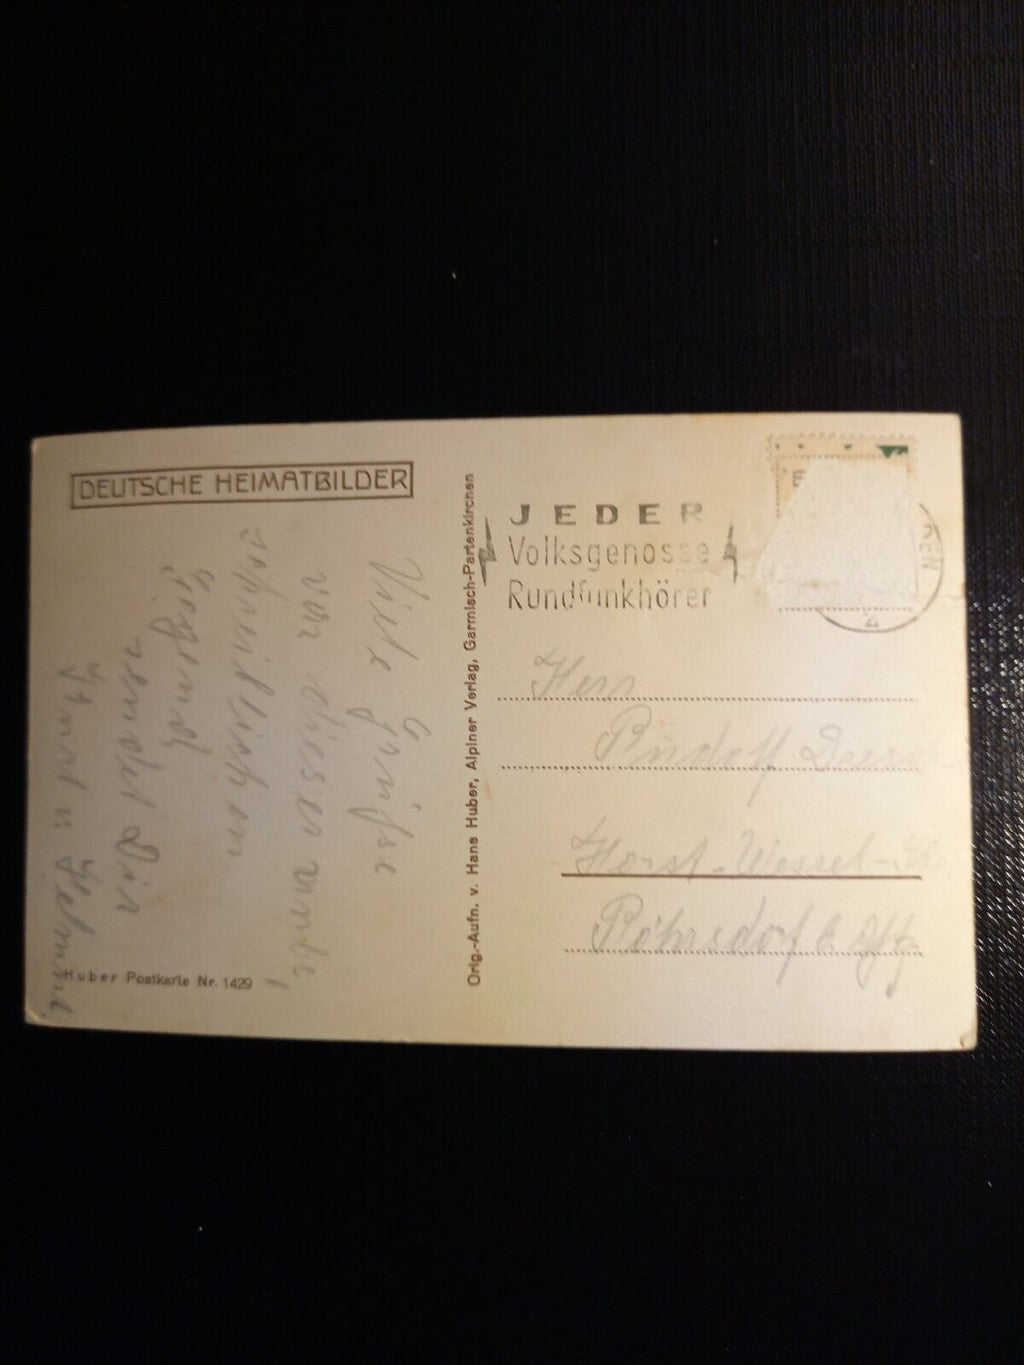 DEUTSCHE HEIMATBILDER
Viele Grüsse
von dieser
Gegend
sendet Dir
u. Helmut
Huber Postkarte Nr. 1429
Orig.-Aufn. v. Hans Huber, Alpiner Verlag, Garmisch-Partenkirchen
JEDER
Volksgenosse
Rundfunkhörer
KEN
2
Herr
Rudolf
Horst-Wessel-
Röhrsdorf b.